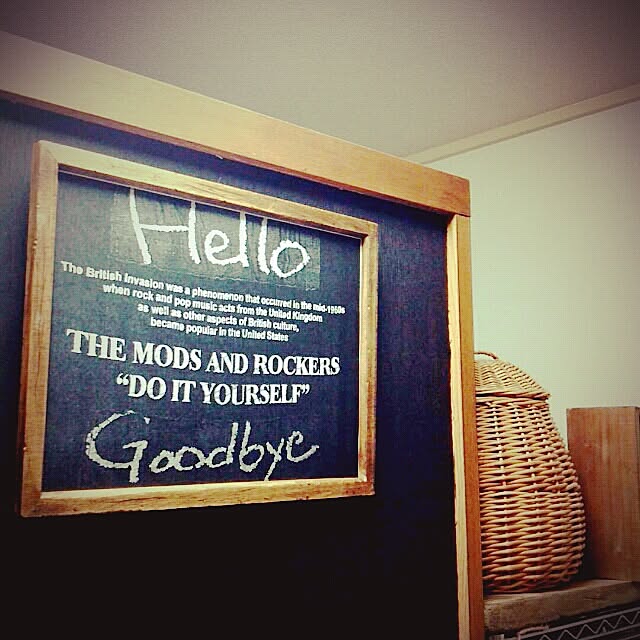 Hello
The British Invasion was a phenomenon that occurred in the mid-1960s
when rock and pop music acts from the United Kingdom
as well as other aspects of British culture,
became popular in the United States
THE MODS AND ROCKERS
“DO IT YOURSELF”
Goodbye